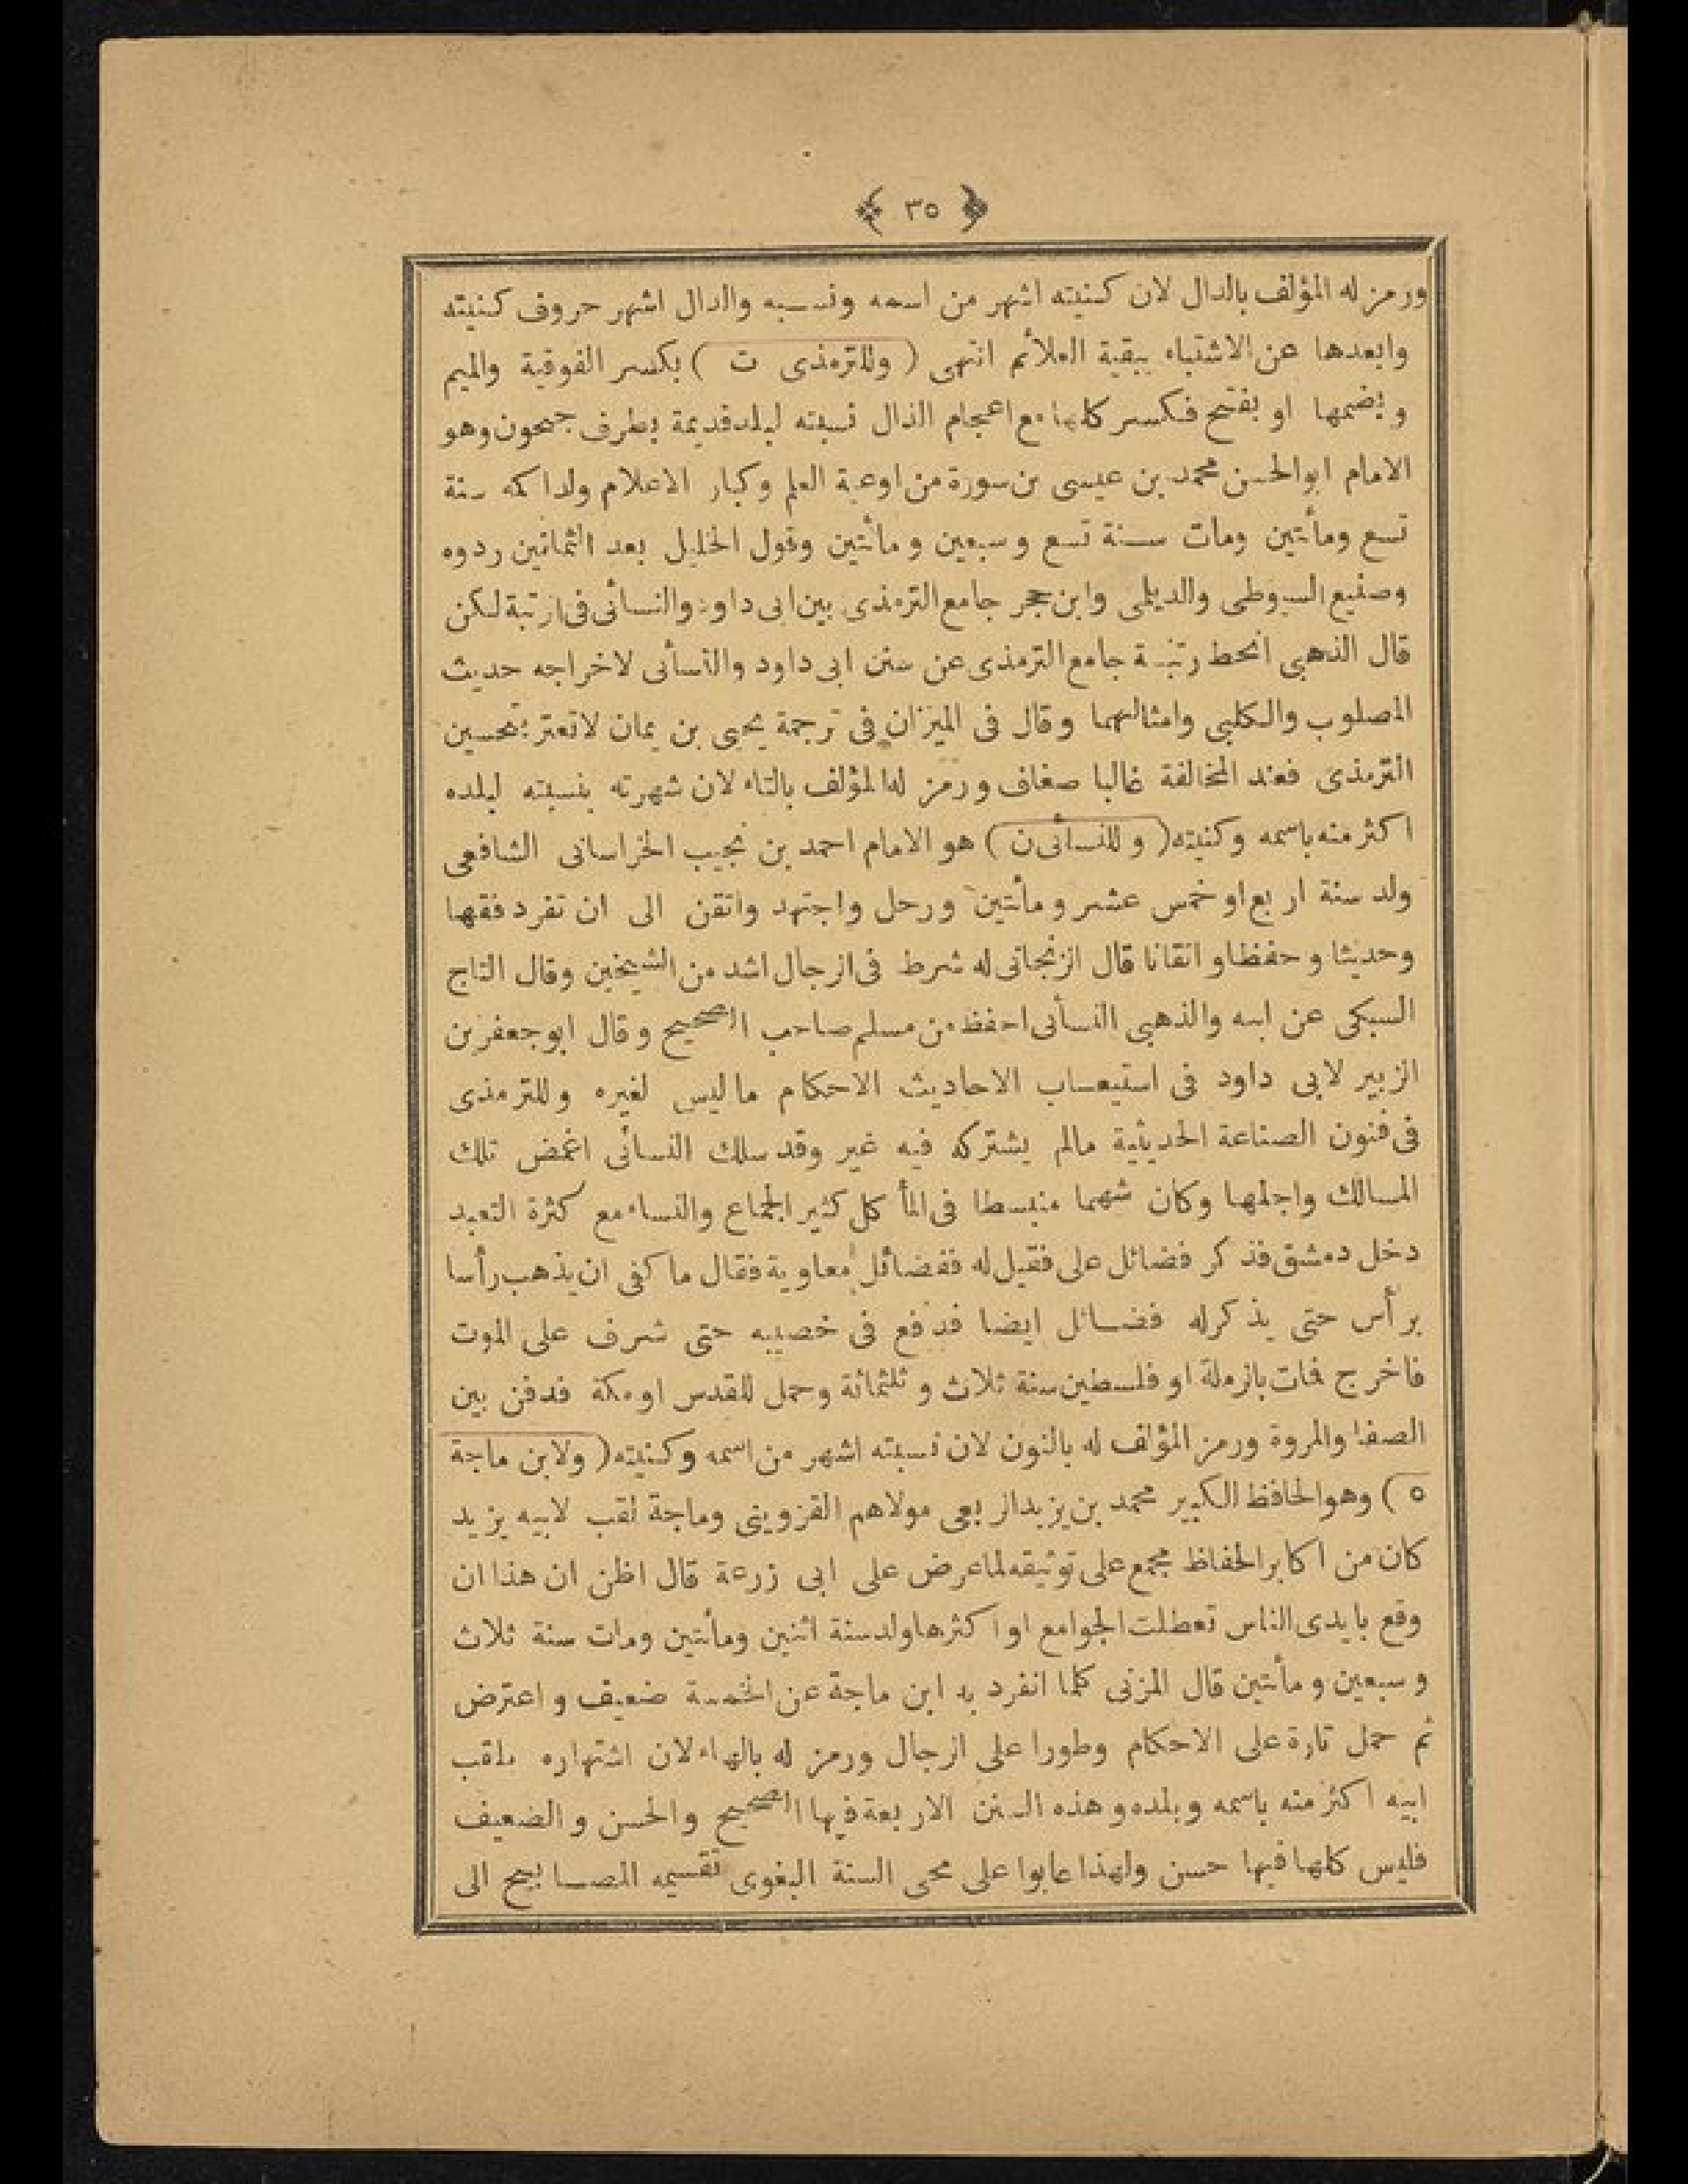 ٣٥
ورمز له المؤلف بالدال لان كنيته اشهر من اسمه ونسبه والدال اشهر حروف كنيته
وابعدها عن الاشتباه ببقية العلائم انتهى ( وللترمذى ت ) بكسر الفوقية والميم
و بضمها او بفتح فكسر كلها مع اعجام الذال نسبته لبلد قديمة بطرف جيحون وهو
الامام ابوالحسن محمد بن عيسى بن سورة من اوعية العلم وكبار الاعلام ولد اكمه سنة
تسع ومأتين ومات سنة تسع و سبعين و مأتين وقول الخليل بعد الثمانين ردوه
وصنيع السيوطى والديلمى وابن حجر جامع الترمذى بين ابى داود والنسائى فى الرتبة لكن
قال الذهبى انحط رتبة جامع الترمذى عن سنن ابى داود والنسأنى لاخراجه حديث
المصلوب والكلبى وامثالهما وقال فى الميزان فى ترجمة يحيى بن يمان لاتغتر بتحسين
الترمذى فعند المخالفة غالبا ضعاف ورمز له المؤلف بالتاء لان شهرته بنسبته لبلده
اكثر منه باسمه وكنيته ( و للنسائى ن ) هو الامام احمد بن نجيب الخراسانى الشافعى
ولد سنة اربع او خمس عشر و مأتين ورحل واجتهد واتقن الى ان تفرد فقها
وحديثا و حفظا و اتقانا قال الزنجانى له شرط فى الرجال اشد من الشيخين وقال التاج
السبكى عن ابيه والذهبى النسأى احفظ من مسلم صاحب الصحيح وقال ابو جعفر بن
الزبير لابى داود فى استيعاب الاحاديث الاحكام ماليس لغيره وللترمذى
فى فنون الصناعة الحديثية مالم يشتركه فيه غير وقد سلك النسائى اغمض تلك
المسالك واجلها وكان شهما منبسطا فى المأكل كثير الجماع والنساء مع كثرة التعبد
دخل دمشق فذكر فضائل على فقيل له ففضائل معاوية فقال ماكفى ان يذهب رأسا
برأس حتى يذكر له فضائل ايضا فدفع فى خصييه حتى شرف على الموت
فاخرج فمات بالرملة او فلسطين سنة ثلاث و ثلثمائة وحمل للقدس او مكة فدفن بين
الصفا والمروة ورمز المؤلف له بالنون لان نسبته اشهر من اسمه وكنيته ( ولابن ماجة
ه ) وهو الحافظ الكبير محمد بن يزيد الربعى مولاهم القزوينى وماجة لقب لابيه يزيد
كان من اكابر الحفاظ مجمع على توثيقه لما عرض على ابى زرعة قال اظن ان هذا ان
وقع بايدى الناس تعطلت الجوامع او اكثرها ولد سنة اثنين ومأتين ومات سنة ثلاث
و سبعين و مأتين قال المزنى كلما انفرد به ابن ماجة عن الخمسة ضعيف و اعترض
ثم حمل تارة على الاحكام وطورا على الرجال ورمز له بالهاء لان اشتهاره بلقب
ابيه اكثر منه باسمه و بلده و هذه السنن الاربعة فيها الصحيح والحسن و الضعيف
فليس كلها فيها حسن ولهذا عابوا على محى السنة البغوى تقسيمه المصابيح الى